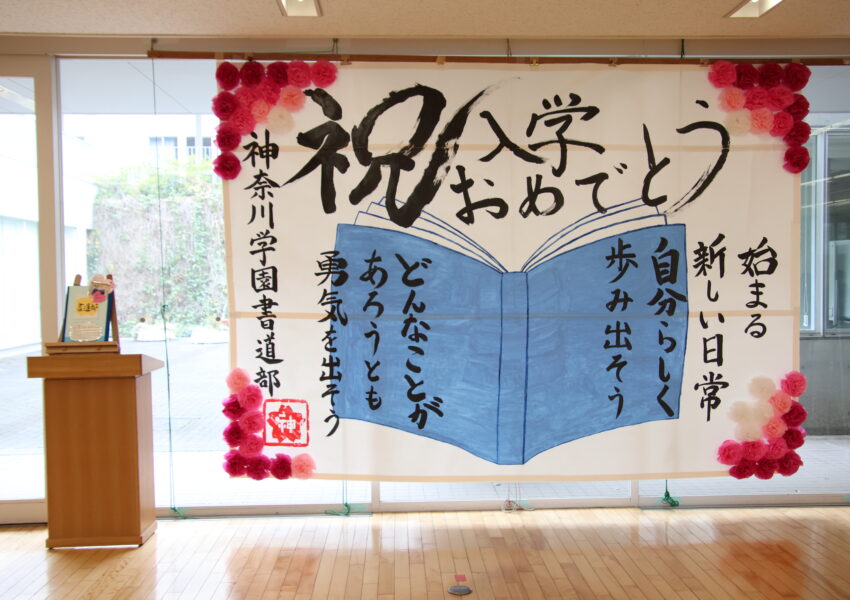 祝 入学
おめでとう
始まる
新しい日常
自分らしく
歩み出そう
どんなことが
あろうとも
勇気を出そう
神奈川学園書道部
神
書道部